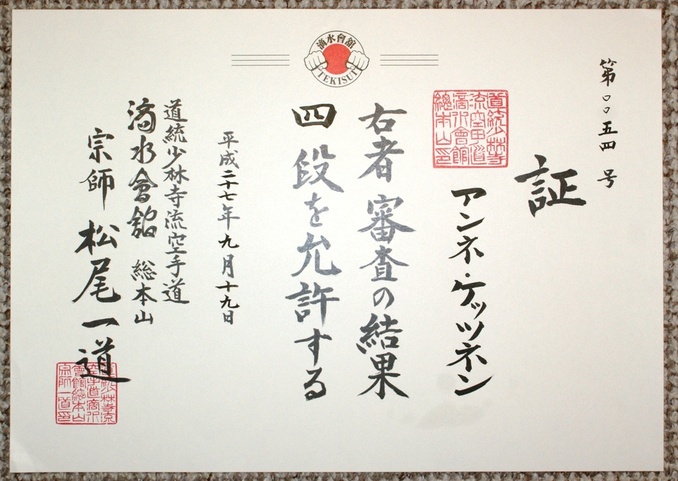 滴水會舘
TEKISUI
第〇〇五四号
証
アンネ・ケッツネン
右者審査の結果
四段を允許する
平成二十七年九月十九日
道統少林寺流空手道
滴水會舘 総本山
宗師 松尾一道
道統少林寺
流空手道
滴水會館
總本山印